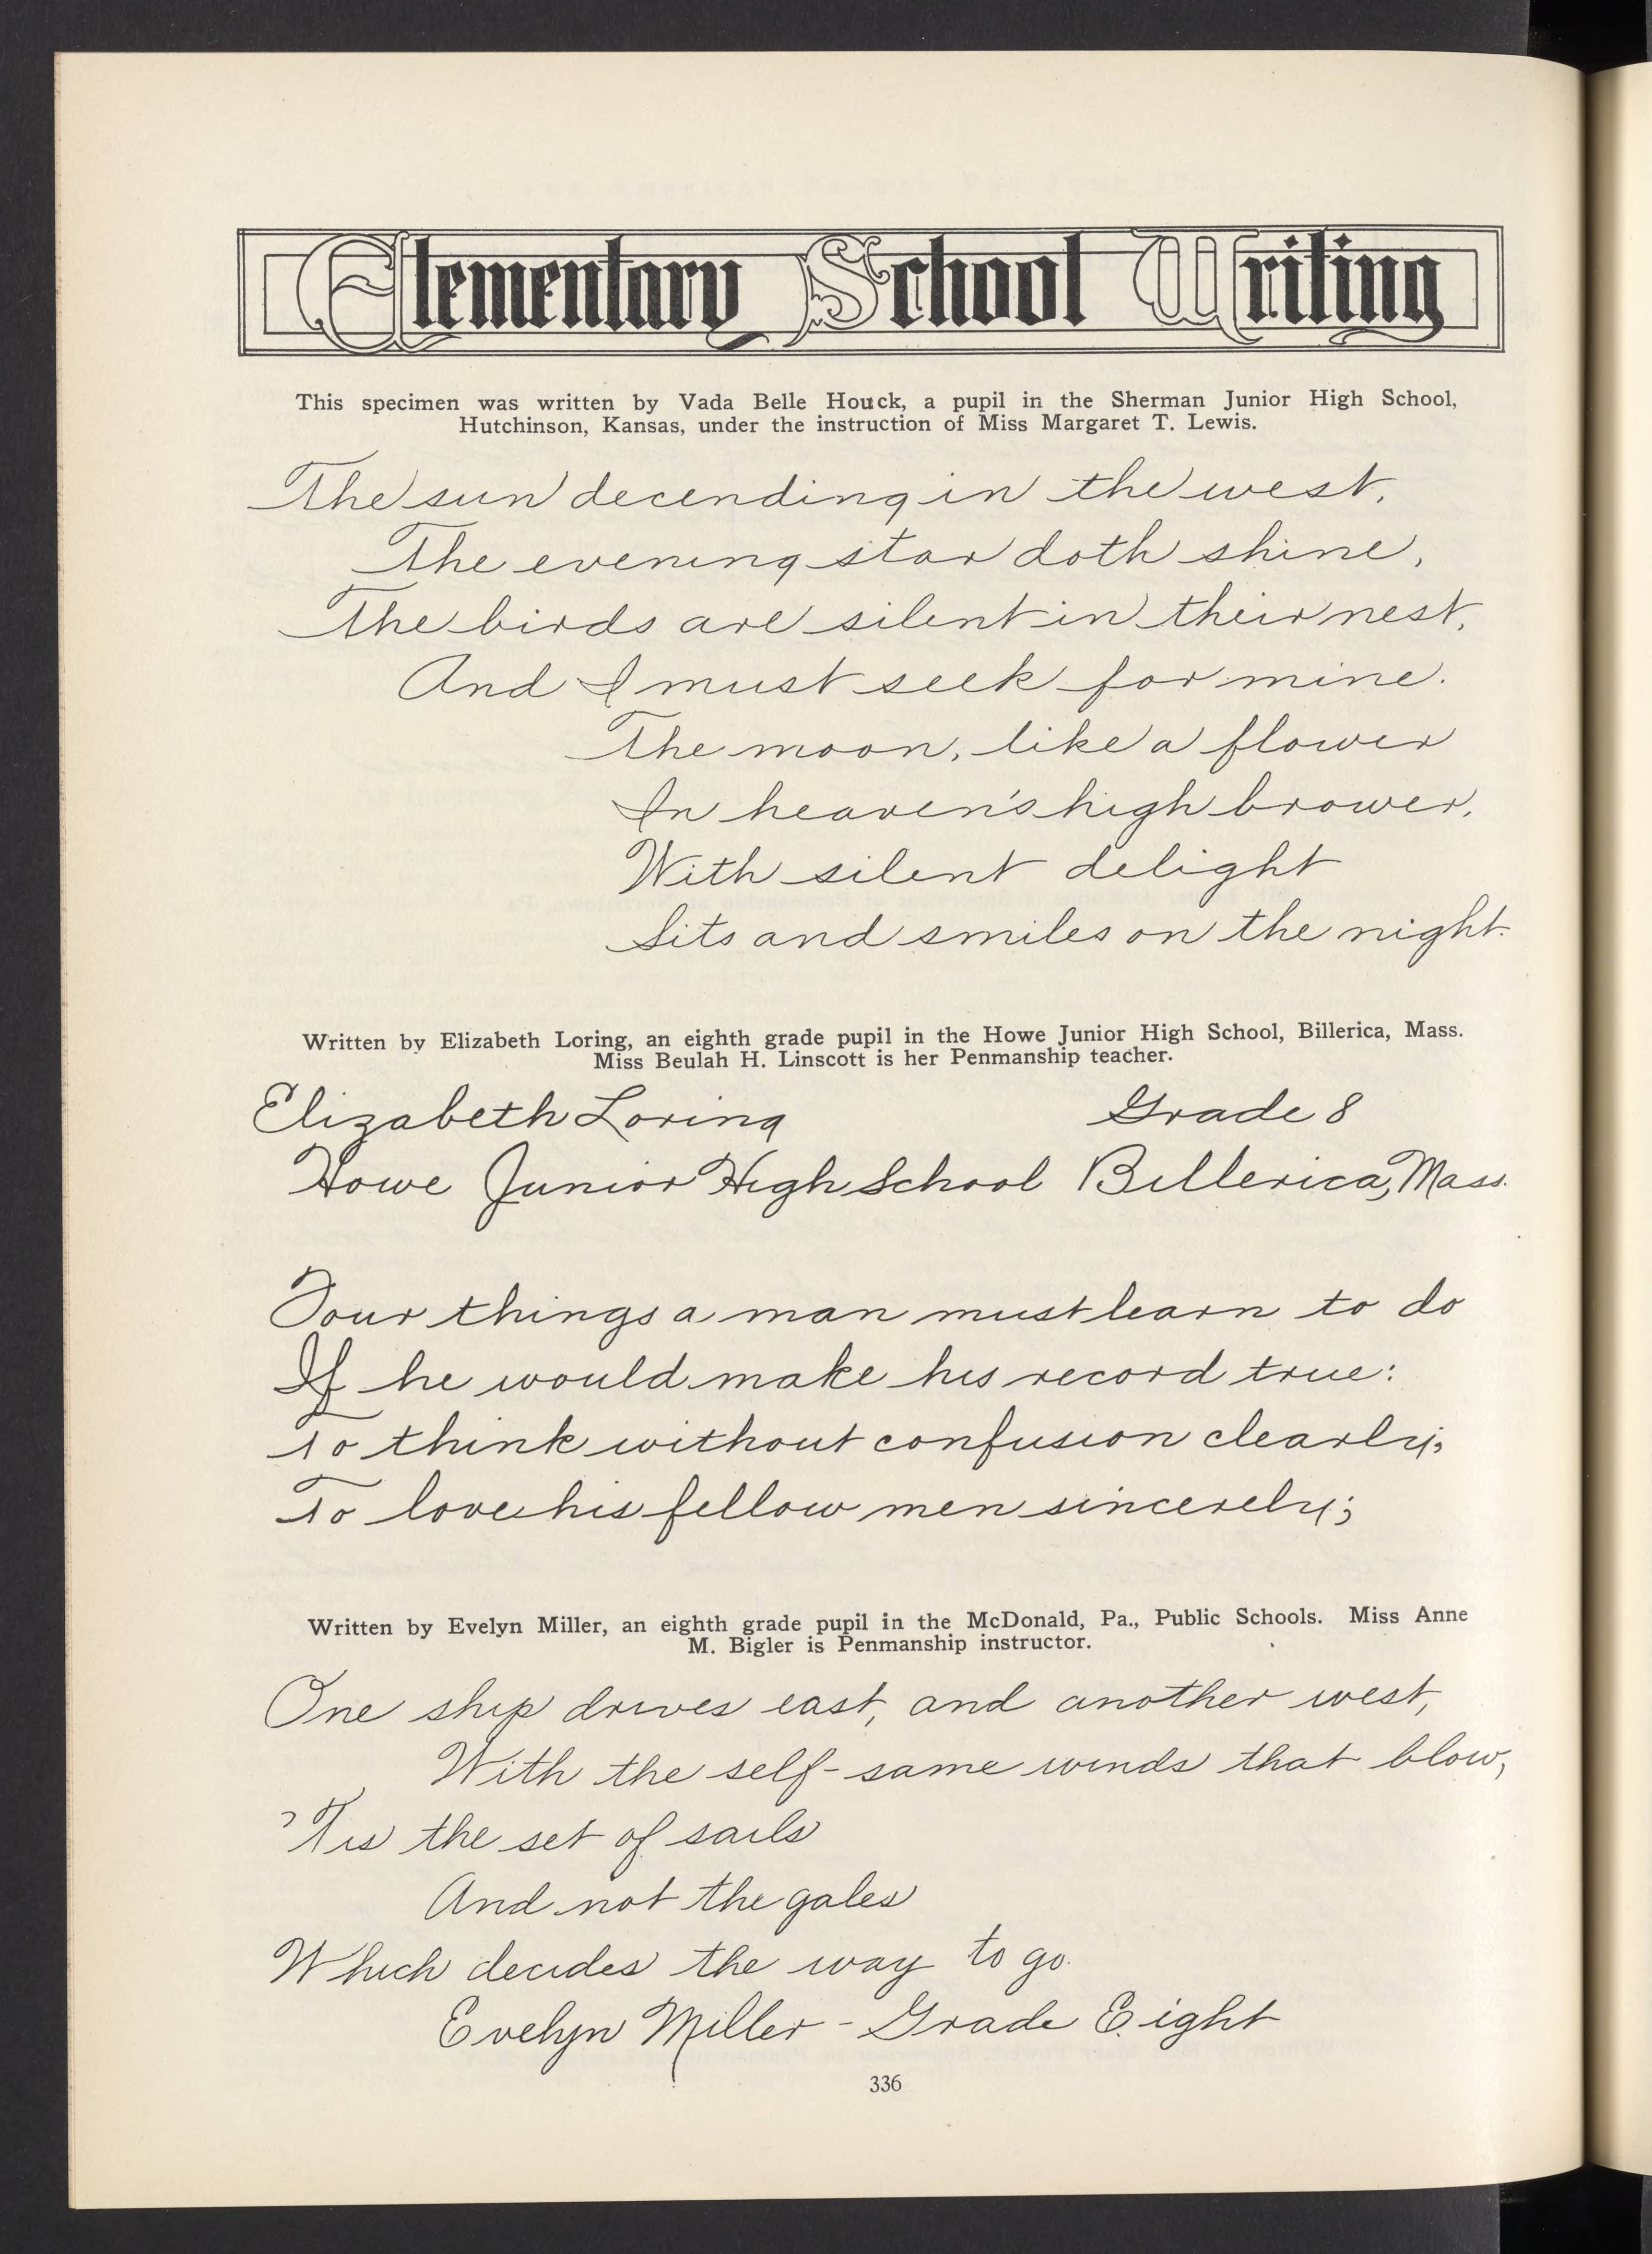 Elementary School Writing
This specimen was written by Vada Belle Houck, a pupil in the Sherman Junior High School,
Hutchinson, Kansas, under the instruction of Miss Margaret T. Lewis.
The sun decending in the west,
The evening star doth shine,
The birds are silent in their nest,
And I must seek for mine.
The moon, like a flower
In heaven's high brower,
With silent delight
Sits and smiles on the night.
Written by Elizabeth Loring, an eighth grade pupil in the Howe Junior High School, Billerica, Mass.
Miss Beulah H. Linscott is her Penmanship teacher.
Elizabeth Loring Grade 8
Howe Junior High School Billerica, Mass.
Four things a man must learn to do
If he would make his record true:
To think without confusion clearly;
To love his fellow men sincerely;
Written by Evelyn Miller, an eighth grade pupil in the McDonald, Pa., Public Schools. Miss Anne
M. Bigler is Penmanship instructor.
One ship drives east, and another west,
With the self-same winds that blow,
'Tis the set of sails
And not the gales
Which decides the way to go.
Evelyn Miller - Grade Eight
336